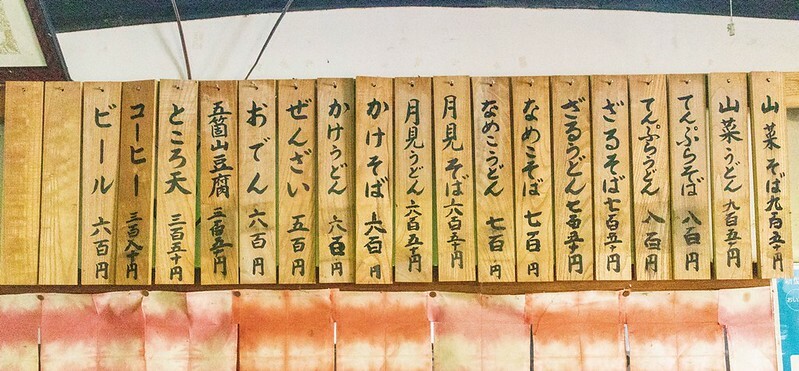 山菜そば九百五十円
山菜うどん九百五十円
てんぷらそば八百円
てんぷらうどん八百円
ざるそば七百五十円
ざるうどん七百五十円
なめこそば七百円
なめこうどん七百円
月見そば六百五十円
月見うどん六百五十円
かけそば六百円
かけうどん六百円
ぜんざい五百円
おでん六百円
五箇山豆腐三百五十円
ところ天三百五十円
コーヒー三百八十円
ビール六百円